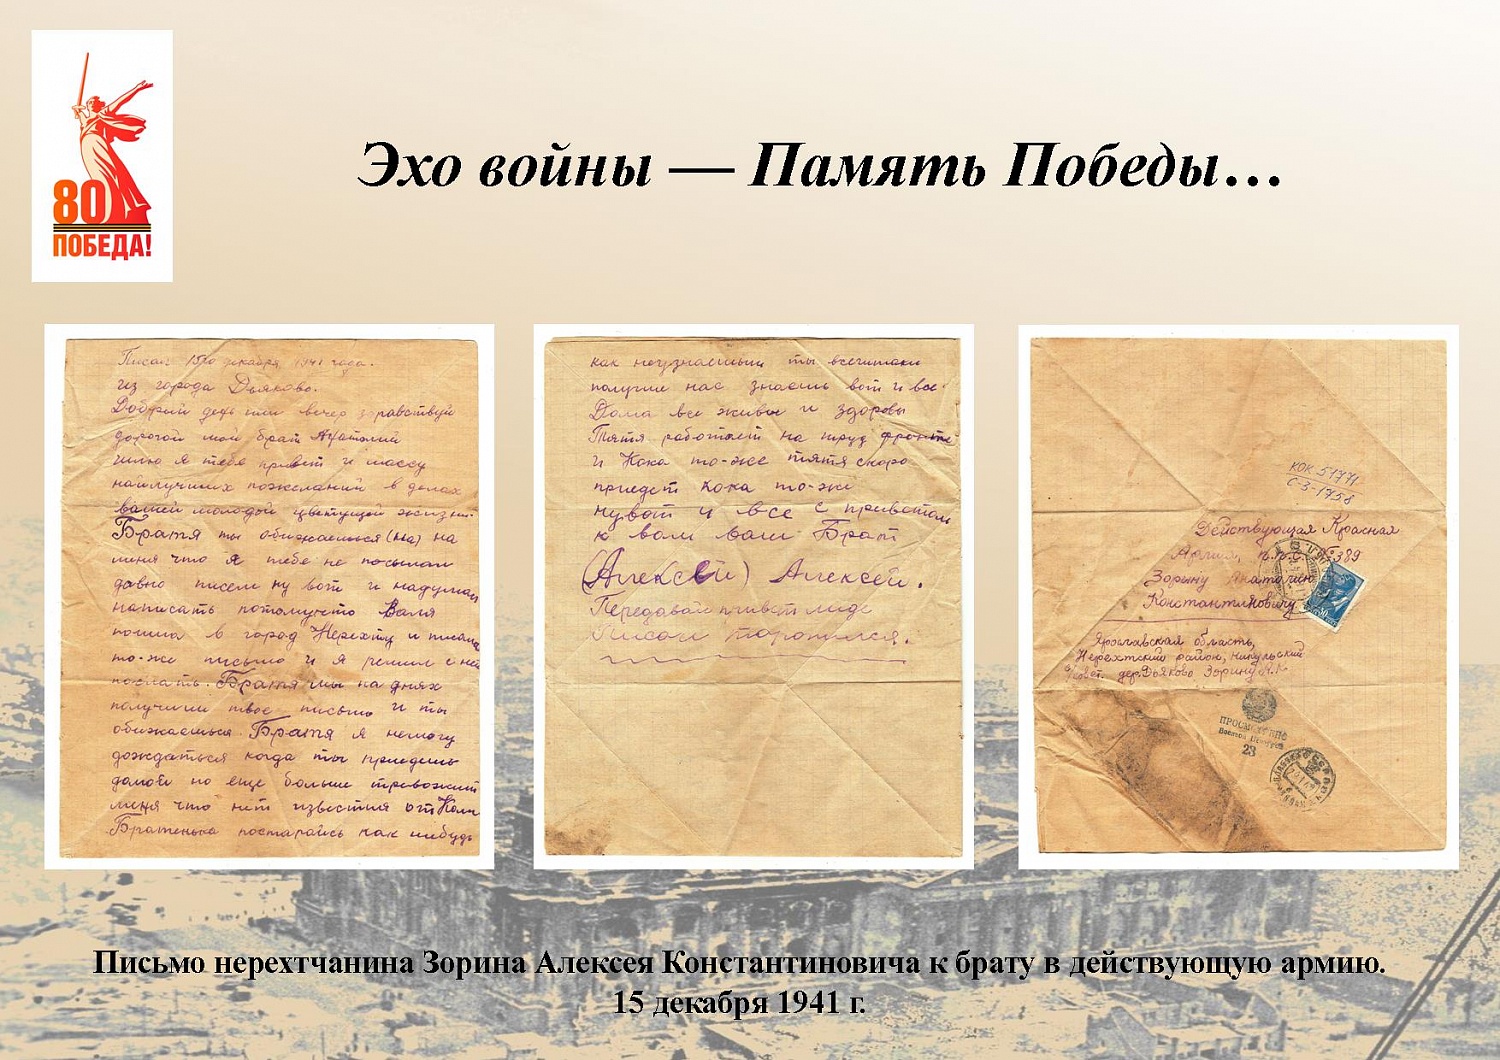 80
ПОБЕДА!
Эхо войны — Память Победы…
Писал 15го декабря 1941 года.
из города Дьяково.
Добрый день или вечер здравствуй
дорогой мой брат Анатолий
шлю я тебе привет и массу
наилучших пожеланий в делах
вашей молодой цветущей жизни.
Братя ты обижаешься (на) на
меня что я тебе не посылал
давно писем ну вот и надумал
написать потомучто Валя
пошла в город Нерехту и писала
то-же письмо и я решил с ней
послать. Братя мы на днях
получили твое письмо и ты
обижаешься Братя я немогу
дождаться когда ты приедешь
домой но еще больше тревожит
меня что нет известия от Коли
Братенька постарайсь как нибудь
как неузнаешьли ты всёчитаки
получше нас знаешь вот и все.
Дома все живы и здоровы
Тятя работает на труд фронте
и Кока то-же тятя скоро
приедет кока то-же
нувот и все с приветом
к вам ваш Брат
(Алексей) Алексей.
Передавай привет
Писал торопился.
КОК 51771
С-3-1758
Действующая Красная
Армия, п.п.с. 389
Зорину Анатолию
Константиновичу
Ярославская область,
Нерехтский район, никульский
с/совет. дер. Дьяково Зорину А.К
ПРОСМОТРЕНО
Военной Цензурой
23
Письмо нерехтчанина Зорина Алексея Константиновича к брату в действующую армию.
15 декабря 1941 г.